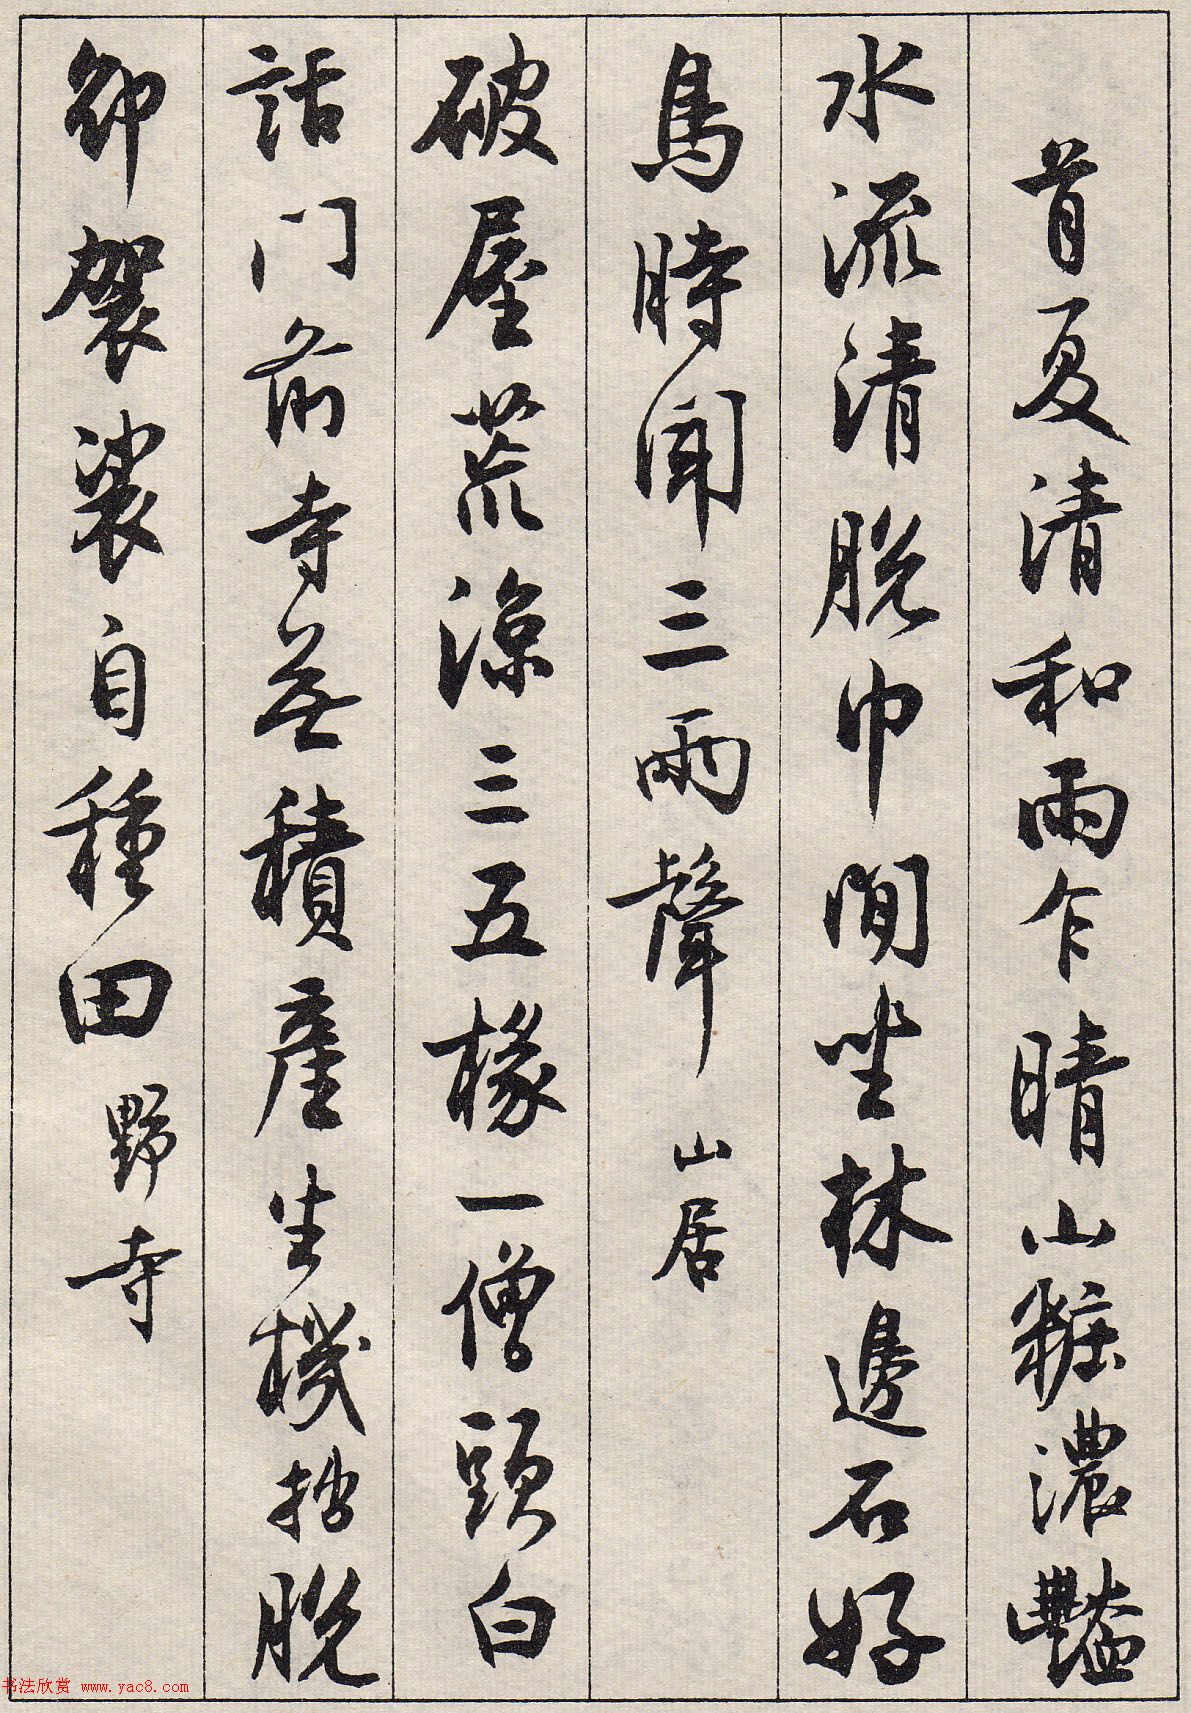 首夏清和雨乍晴山粧濃豔
水流清脫巾閒坐林邊石好
鳥時聞三兩聲 山居
破屋荒涼三五椽一僧頭白
話門前寺無積產生機拙脫
卻袈裟自種田 野寺
书法欣赏 www.yac8.com